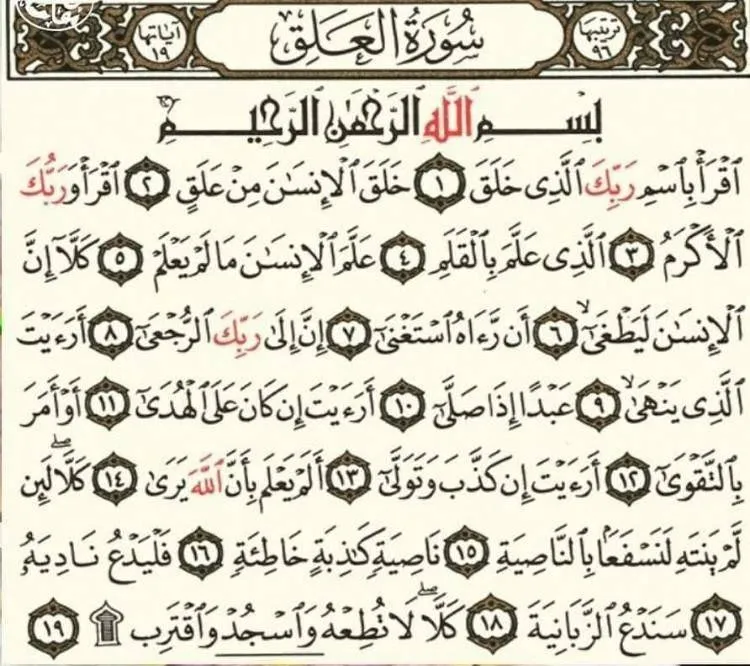 ترتيبها ٩٦ سُورَةُ الْعَلَقِ آياتها ١٩
بِسْمِ اللَّهِ الرَّحْمَٰنِ الرَّحِيمِ
ٱقْرَأْ بِٱسْمِ رَبِّكَ ٱلَّذِى خَلَقَ ١ خَلَقَ ٱلْإِنسَٰنَ مِنْ عَلَقٍ ٢ ٱقْرَأْ وَرَبُّكَ
ٱلْأَكْرَمُ ٣ ٱلَّذِى عَلَّمَ بِٱلْقَلَمِ ٤ عَلَّمَ ٱلْإِنسَٰنَ مَا لَمْ يَعْلَمْ ٥ كَلَّآ إِنَّ
ٱلْإِنسَٰنَ لَيَطْغَىٰٓ ٦ أَن رَّءَاهُ ٱسْتَغْنَىٰٓ ٧ إِنَّ إِلَىٰ رَبِّكَ ٱلرُّجْعَىٰٓ ٨ أَرَءَيْتَ
ٱلَّذِى يَنْهَىٰ ٩ عَبْدًا إِذَا صَلَّىٰٓ ١٠ أَرَءَيْتَ إِن كَانَ عَلَى ٱلْهُدَىٰٓ ١١ أَوْ أَمَرَ
بِٱلتَّقْوَىٰٓ ١٢ أَرَءَيْتَ إِن كَذَّبَ وَتَوَلَّىٰٓ ١٣ أَلَمْ يَعْلَم بِأَنَّ ٱللَّهَ يَرَىٰ ١٤ كَلَّا لَئِن
لَّمْ يَنتَهِ لَنَسْفَعًۢا بِٱلنَّاصِيَةِ ١٥ نَاصِيَةٍ كَٰذِبَةٍ خَاطِئَةٍ ١٦ فَلْيَدْعُ نَادِيَهُۥ
١٧ سَنَدْعُ ٱلزَّبَانِيَةَ ١٨ كَلَّا لَا تُطِعْهُ وَٱسْجُدْ وَٱقْتَرِب ۩ ١٩